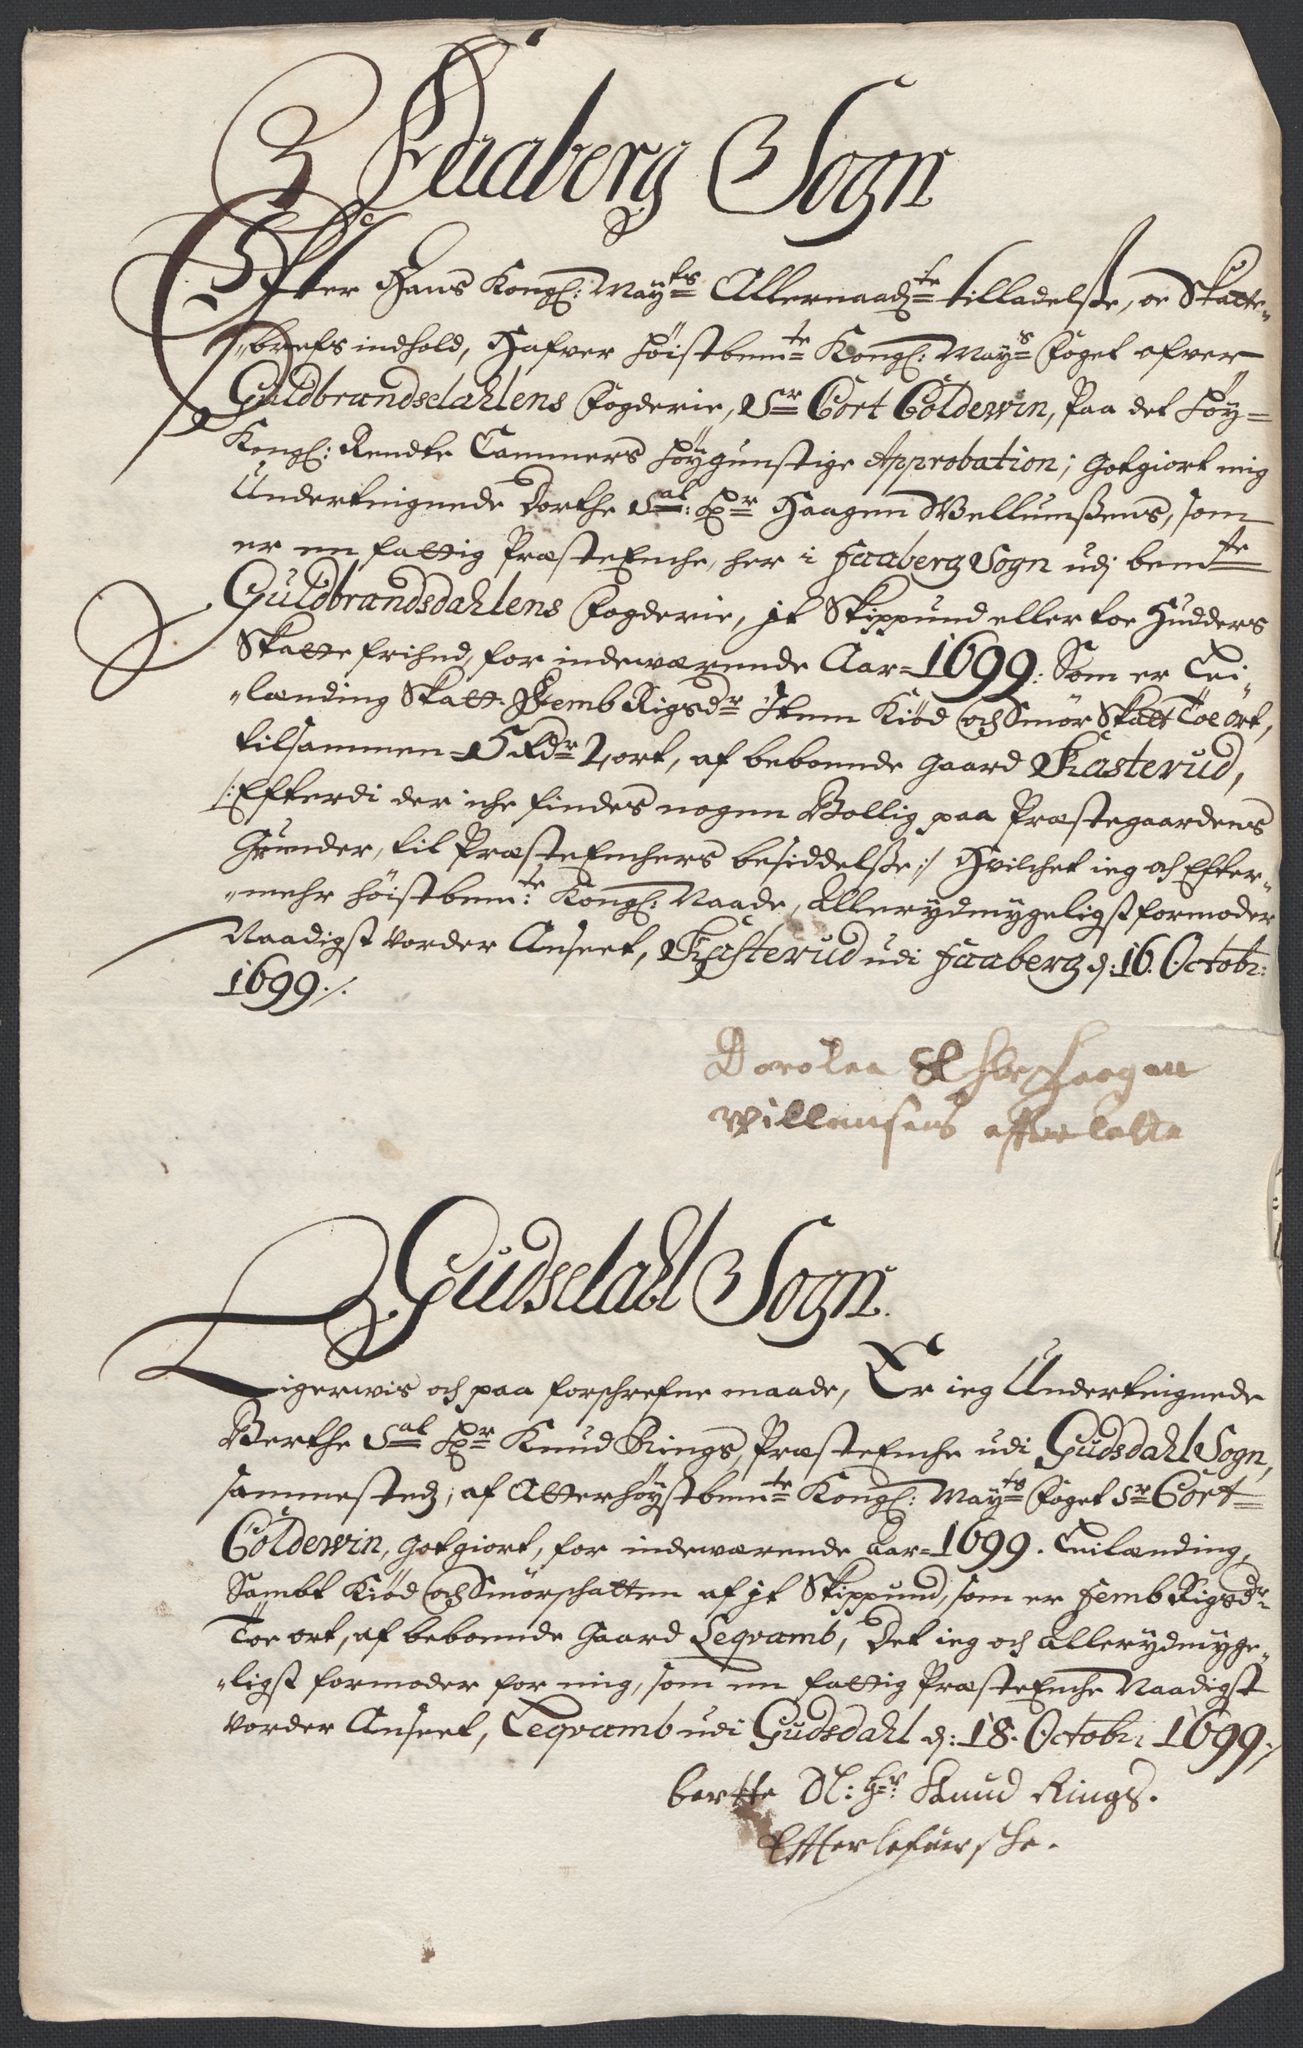 Faaberg Sogn
Efter Hans Kongl: Mayts Allernaadte tilladelsse, oc Skatte-
brefs indhold, Hafver höistbemte Kongl: Mays Foget ofver
Guldbrandsdahlens Fogderie, Sr Cort Coldewin, Paa det höy-
Kongl: Rendte Cammers höygunstige Approbation; Gotgiort mig
Underteignede Dorthe Sal: Hr Haagen Wellumssens, som
er en fattig Præste Enche, her i Faaberg Sogn udj bemte
Guldbrandsdahlens Fogderie, jt Skippund eller toe Hudders
Skatte frihed, for indewærende Aar=1699: Som er Lei-
lænding Skatt Femb Rigsdr Item Kiöd och Smör Skatt Toe ort,
tilsammen=5 Rdr 2 ort, af beboende Gaard Kasterud,
/:Efterdi der iche findes nogen Bollig paa Præstegaardens
Grunder, til Præste Enchers besiddelsse:/ Hvilchet ieg och Efter-
mehr höistbemte Kongl: Naade, Allerydmygeligst formoder
Naadigst vorder Anseet, Kasterud udi Faaberg d: 16. Octobr:
1699./.
Dorotea Sl Her Haagen
Willumsens efterlatte
Gudsdahl Sogn.
Ligerwis och paa forschrefne maade, Er ieg Underteignede
Berthe Sal Hr Knud Rings, Præste Enche udi Gudsdahl Sogn,
sammested, af Atterhöystbemte Kongl: Mayts Foget Sr Cort
Coldewin, Gotgiort, for indewærende Aar=1699. Leilænding,
Sambt Kiöd och Smörschatten af jt Skippund, som er femb Rigsdr
Toe ort, af beboende Gaard Leqvamb, Det ieg och allerydmyge-
ligst formoder for mig, som en fattig Præste Enche Naadigst
vorder Anseet, Leqvamb udi Gudsdahl d: 18. Octobr: 1699./
bertte Sl: Hr Knud Rings.
Efterlefuersche.